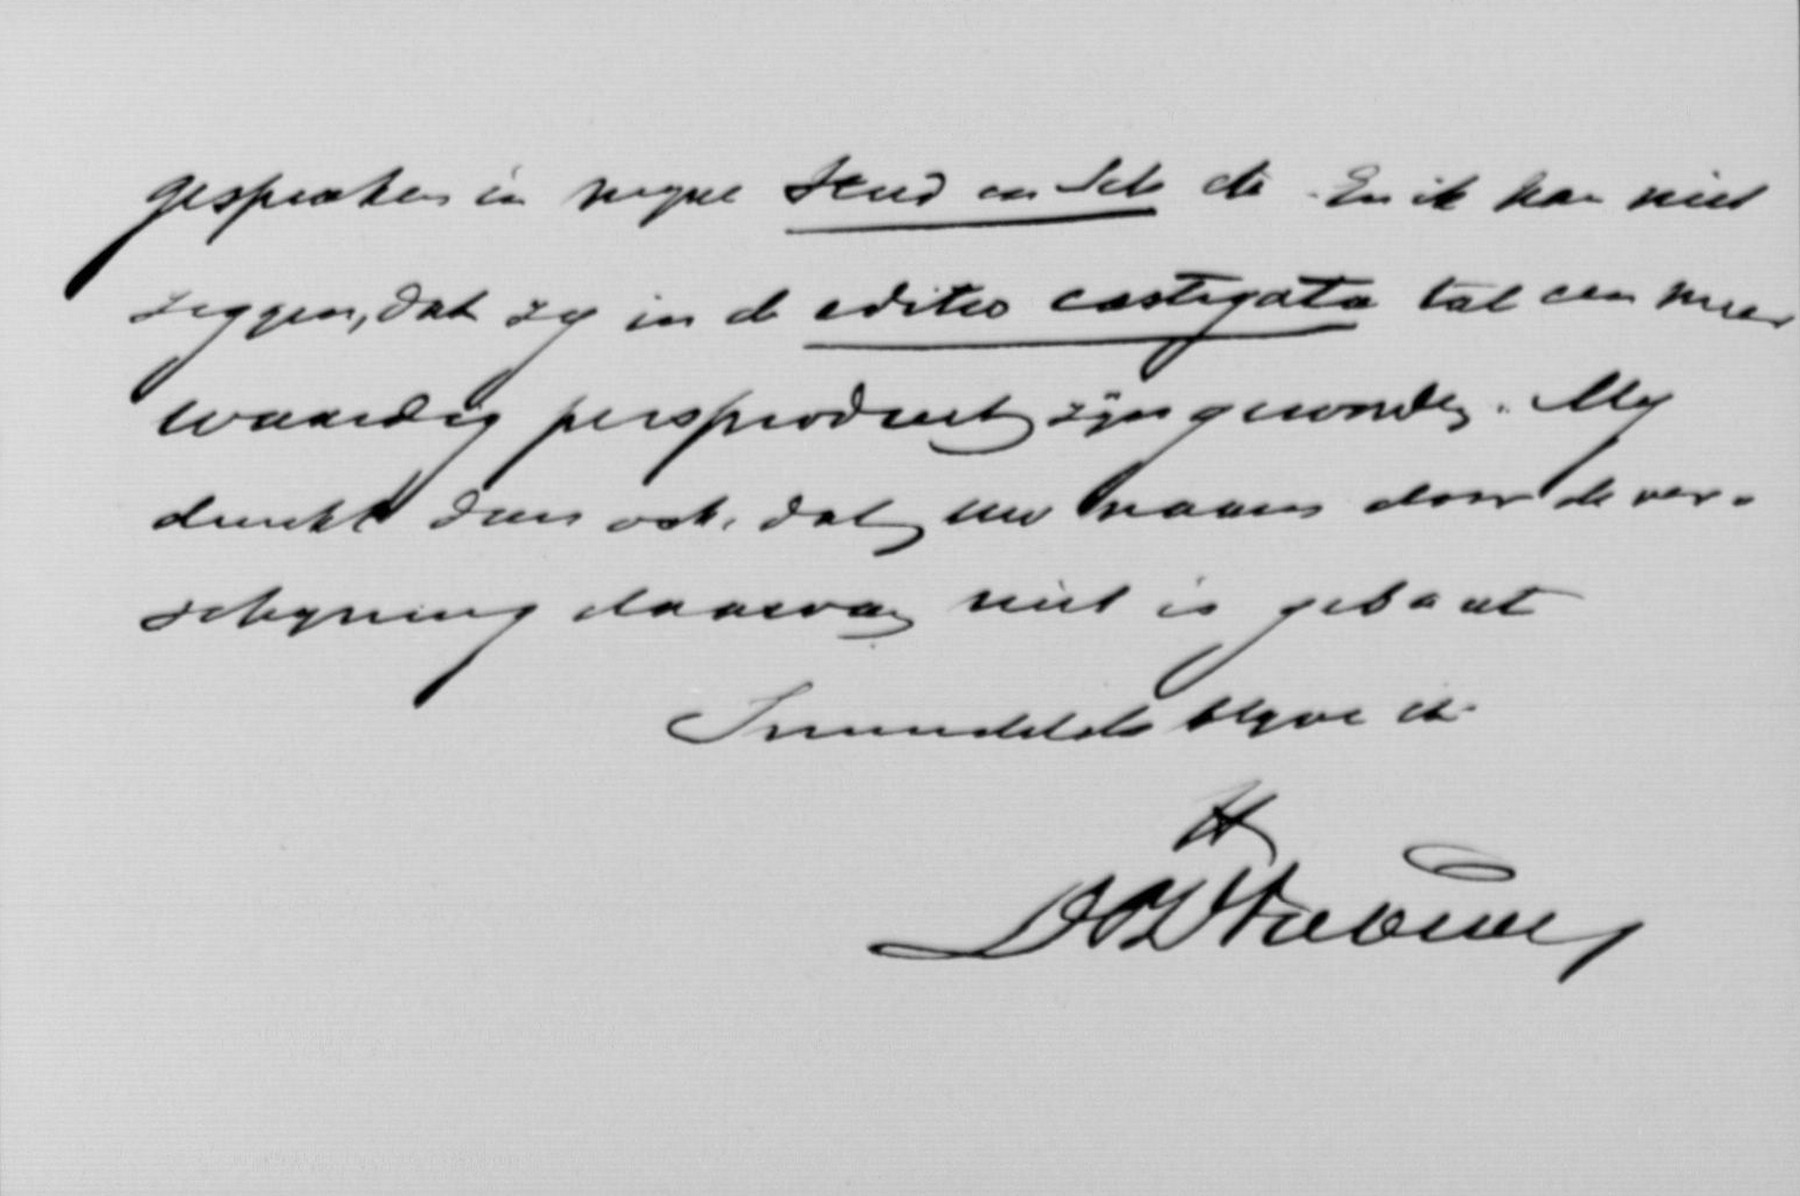 gesproken in mijne Stud en Sch de. En ik kan niet
zeggen, dat zij in de editio castigata tot een meer
waardig persproduct zijn geworden. Mij
dunkt dan ook, dat uw naam door de ver-
schijning daarvan niet is gebaat
Inmiddels blijve ik